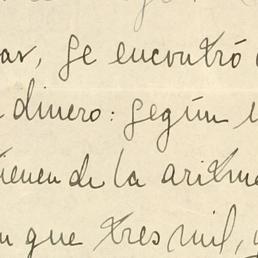 ar, se encontró
dinero: según
tienen de la aritme
que tres mil,